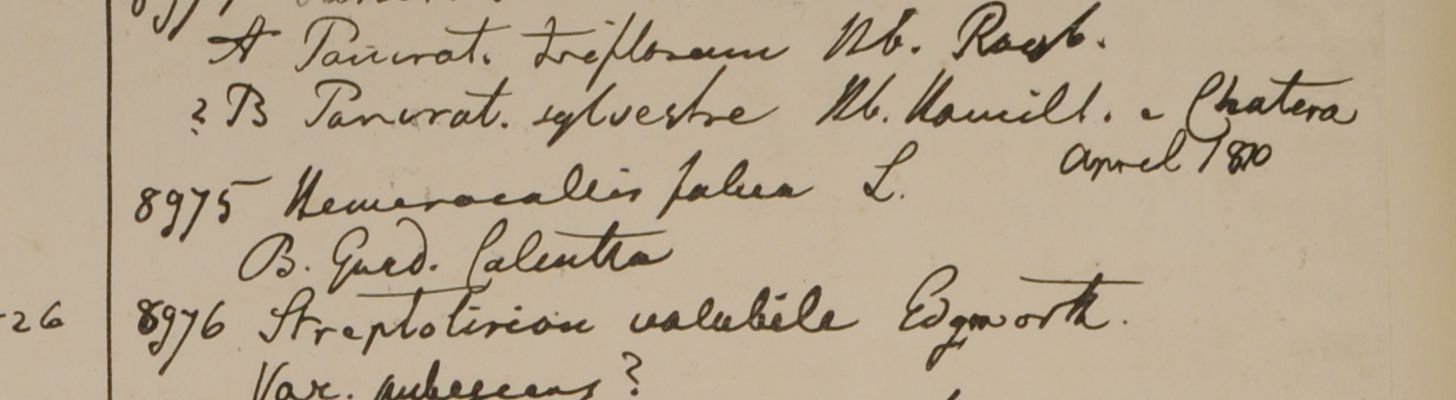 A Pancrat. triflorum Hb. Roxb.
? B Pancrat. sylvestre Hb. Hamilt. e Chatera
April 1810
8975 Hemerocallis fulva L.
B. Gard. Calcutta
8976 Streptolirion volubile Edgworth.
Var. pubescens ?